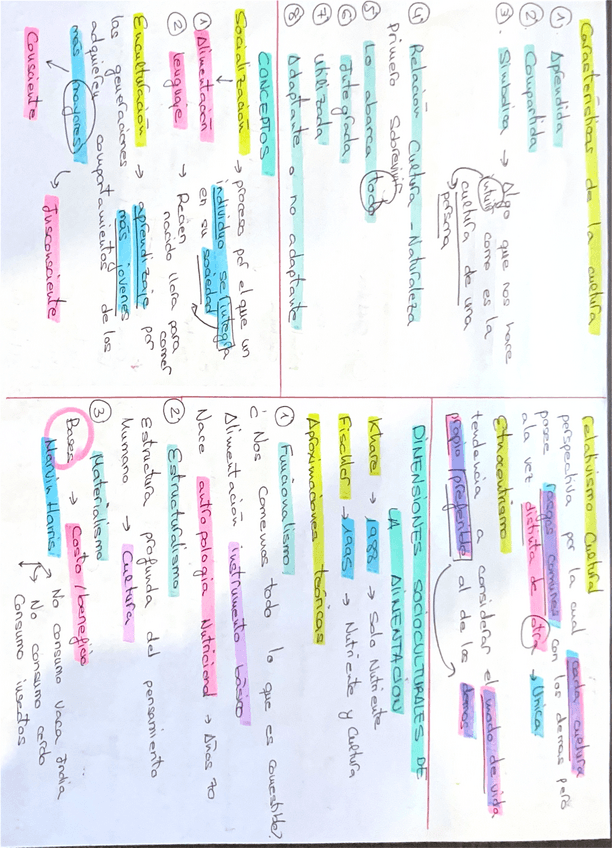 Características de la cultura
① Aprendida
② Compartida
③ Simbolica → Algo que nos hace
intuir como es la
cultura de una
persona
④ Relación Cultura - Naturaleza
primero sobrevivir
⑤ Lo abarca todo
⑥ Integrada
⑦ Utilizada
⑧ Adaptante o no adaptante
CONCEPTOS
Socialización → proceso por el que un
individuo se integra
en su sociedad
① Alimentación
② lenguaje → Recien
nacido llora para comer
Enculturación → aprendizaje por
las generaciones más jovenes
adquieren comportamientos de los
más mayores
Consciente Insconsciente
Relativismo Cultural
perspectiva por la cual cada cultura
posee rasgos comunes con los demas pero
a la vez distinta de otra → Unica
Etnocentrismo
tendencia a considerar el modo de vida
propio preferible al de los demas
DIMENSIONES SOCIOCULTURALES DE
LA ALIMENTACION
Khare → 1988 → Solo Nutriente
Fischler → 1995 → Nutriente y Cultura
Aproximaciones teóricas
① Funcionalismo
¿Nos comemos todo lo que es comestible?
Alimentación instrumento básico
Nace antropologia Nutricional → Años 70
② Estructuralismo
Estructura profunda del pensamiento
Humano → Cultura
③ Materialismo
Bases → Costo/beneficio
Marvin Harris
No consumo vaca India
No consumo cerdo
Consumo insectos